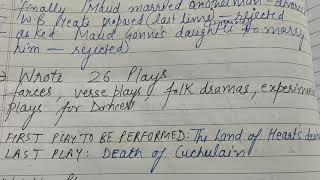 finally Maud married another man - divorce
W B Yeats proposed (last time) - rejected
asked Maud Gonne's daughter to marry
him - rejected)
→ Wrote 26 Plays
farces, verse plays, folk dramas, experimen
plays for Dancers
FIRST PLAY TO BE PERFORMED: The Land of Heart's desire
LAST PLAY: Death of Cuchulain